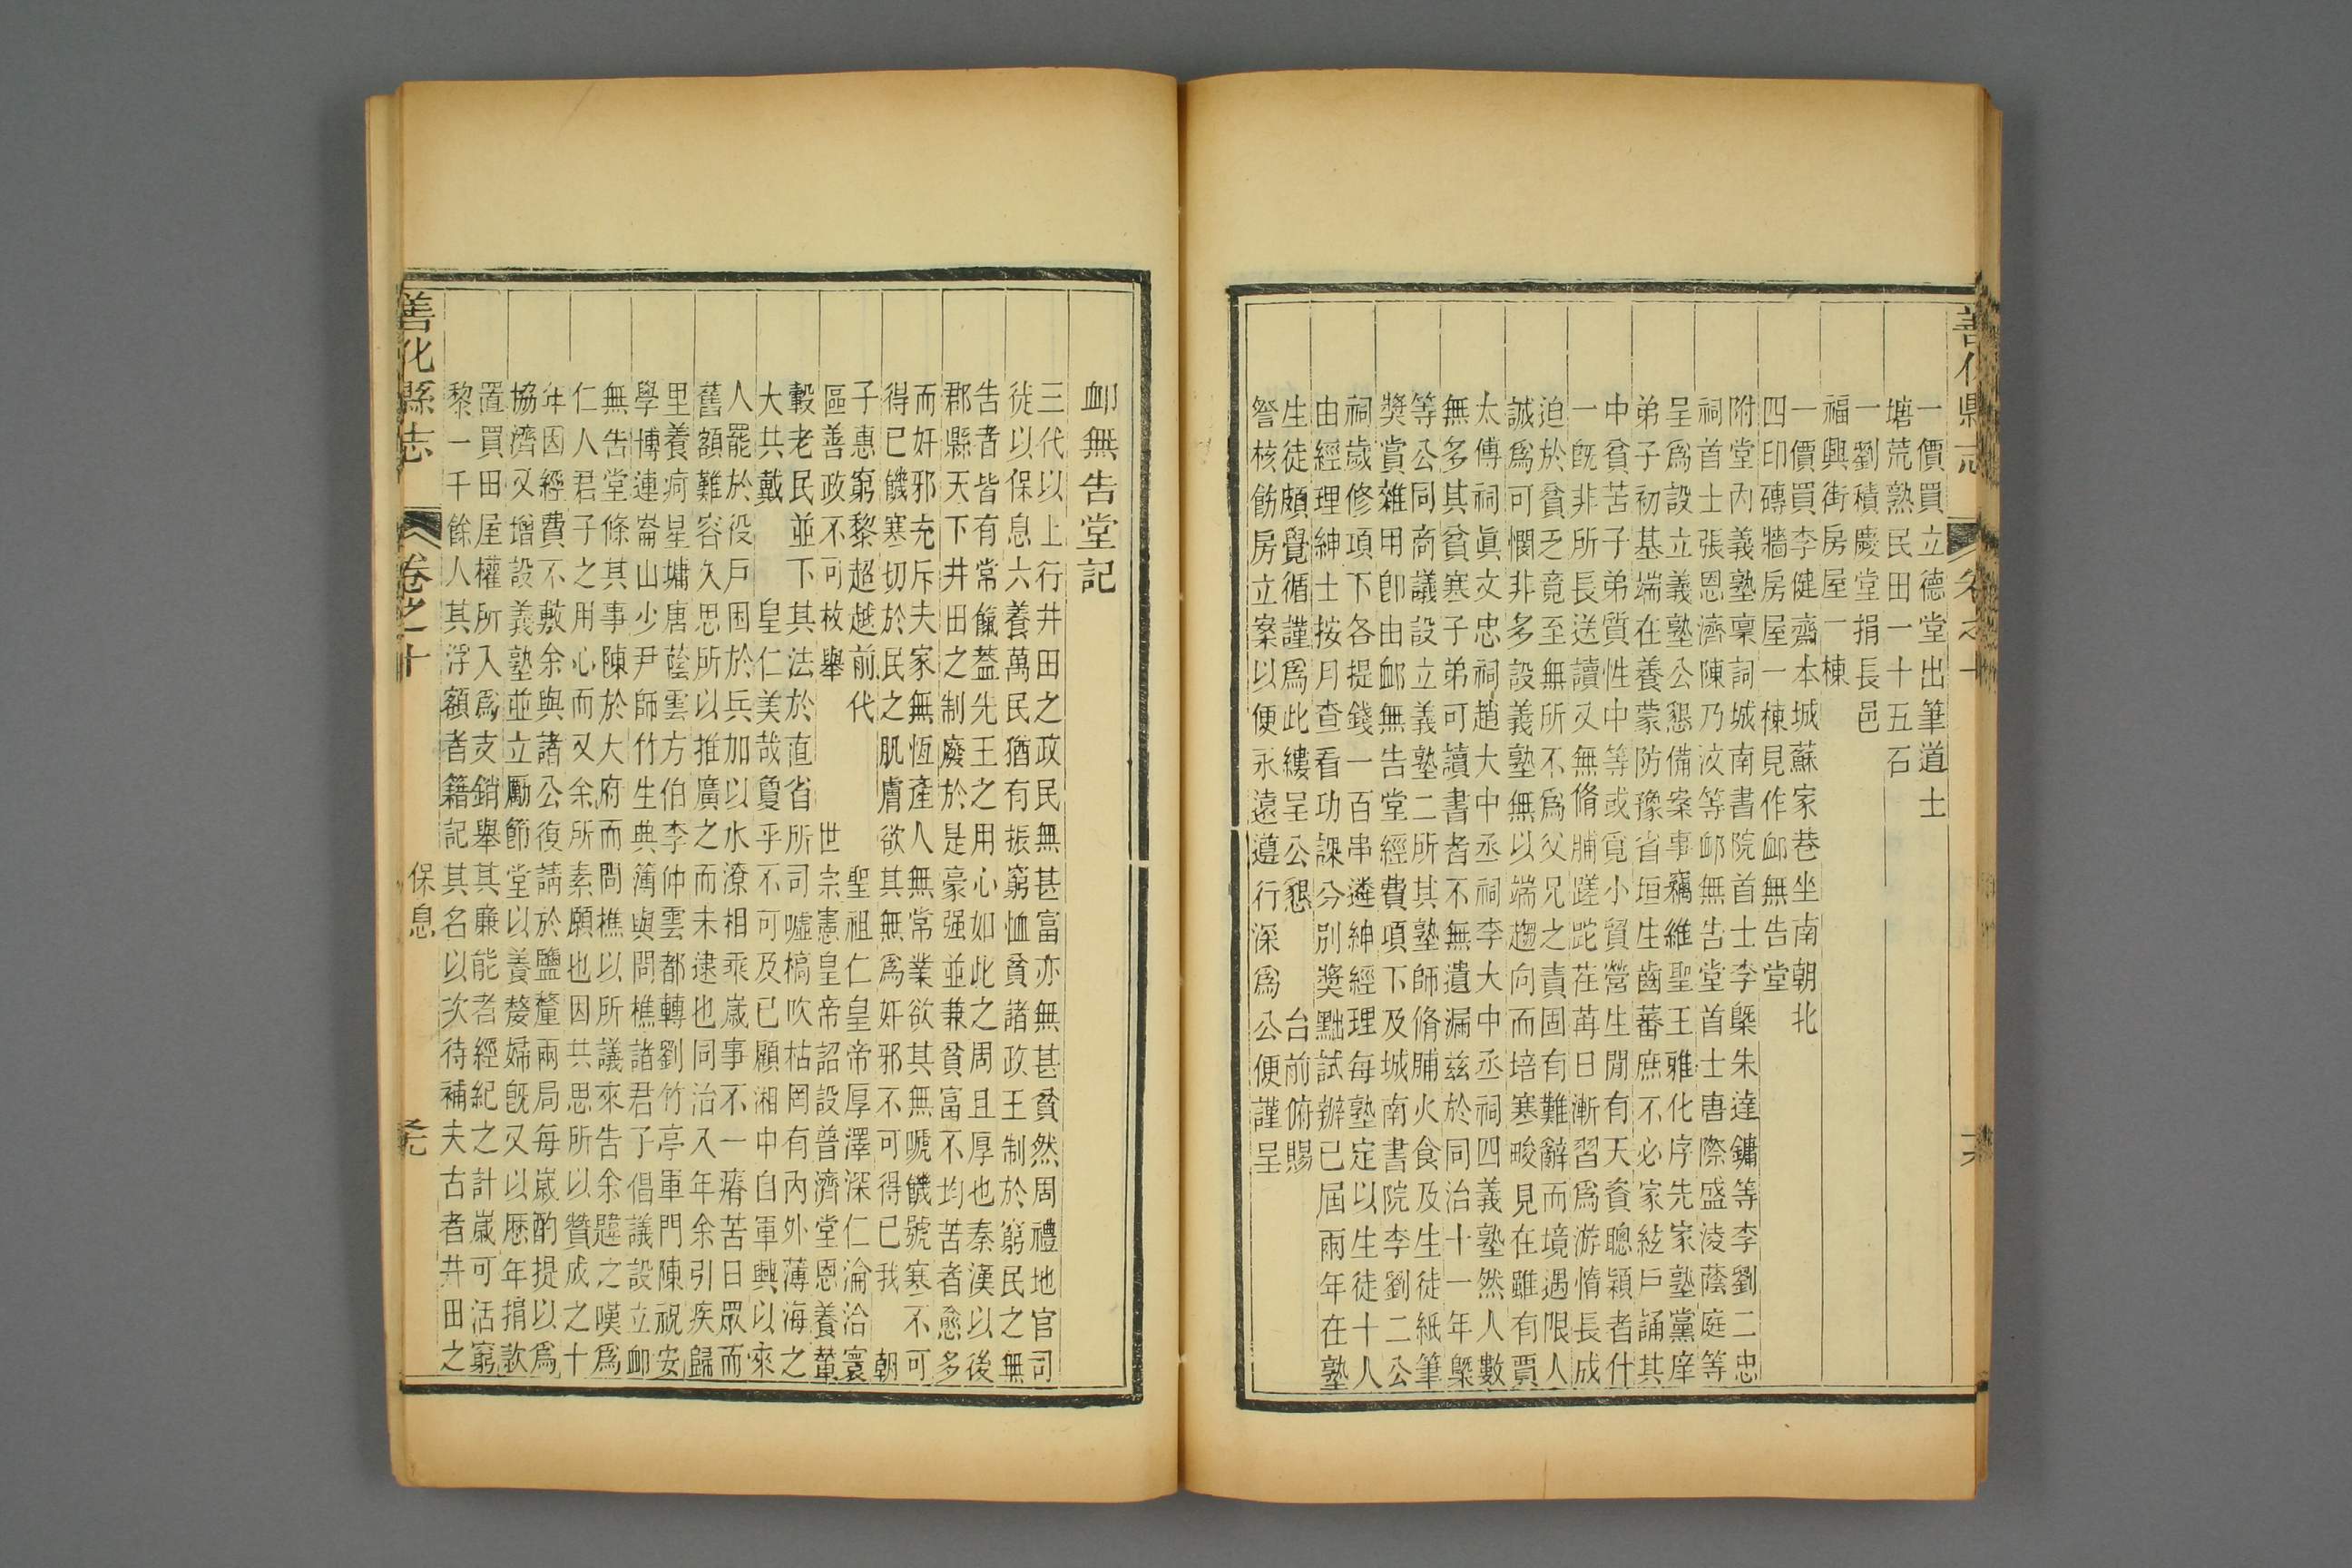 善化縣志
卷之十
一價買立德堂出筆道士
塘荒熟民田一十五石
一劉積慶堂捐長邑
福興街房屋一棟
一價買李健齋本城蘇家巷坐南朝北
四印磚牆房屋一棟見作卹無告堂
附堂內義塾稟詞城南書院首士李槩朱達鏞等李劉二忠
祠首士張恩濟陳乃汶等卹無告堂首士唐際盛淩蔭庭等
呈爲設立義塾公懇備案事竊維聖王雅化序先家塾黨庠
弟子初基端在養蒙防豫省垣生齒蕃庶不必家絃戶誦其
中貧苦子弟質性中等或覓小貿營生閒有天資聰穎者什
一旣非所長送讀又無脩脯蹉跎荏苒日漸習爲游惰長成
迫於貧乏竟至無所不爲父兄之責固有難辭而境遇限人
誠爲可憫非多設義塾無以端趨向而培寒畯見在雖有賈
太傅祠眞文忠祠趙大中丞祠李大中丞祠四義塾然人數
無多其貧寒子弟可讀書者不無遺漏兹於同治十一年槩
等公同商議設立義塾二所其塾師脩脯火食及生徒紙筆
獎賞雜用卽由卹無告堂經費項下及城南書院李劉二公
祠歲修項下各提錢一百串遴紳經理每塾定以生徒十人
由經理紳士按月查看功課分別獎黜試辦已屆兩年在塾
生徒頗覺循謹爲此縷呈公懇　台前俯賜
詧核飭房立案以便永遠遵行深爲公便謹呈
卹無告堂記
三代以上行井田之政民無甚富亦無甚貧然周禮地官司
徒以保息六養萬民猶有振窮恤貧諸政王制於窮民之無
告者皆有常餼蓋先王之用心如此之周且厚也秦漢以後
郡縣天下井田之制廢於是豪强並兼貧富不均苦者愈多
而奸邪充斥夫家無恆產人無常業欲其無唬饑號寒不可
得已饑寒切於民之肌膚欲其無爲奸邪不可得已我　朝
子惠窮黎超越前代　聖祖仁皇帝厚澤深仁淪洽寰
區善政不可枚舉　世宗憲皇帝詔設普濟堂恩養煢
穀老民並下其法於直省所司噓槁吹枯罔有內外薄海之
大共戴　皇仁美哉夐乎不可及已顧湘中自軍興以來
人罷於役戶困於兵加以水潦相乘歲事不一瘠苦日眾而
舊額難容久思所以推廣之而未逮也同治入年余引疾歸
里養痾星墉唐蔭雲方伯李仲雲都轉劉竹亭軍門陳祝安
學博連崙山少尹師竹生典簿與問樵諸君子倡議設立卹
無告堂條其事陳於大府而問樵以所議來告余韙之嘆爲
仁人君子之用心而又余所素願也因共思所以贊成之十
年因經費不敷余與諸公復請於鹽釐兩局每歲酌提以爲
協濟又增設義塾並立勵節堂以養嫠婦旣又以歷年捐款
置買田屋權所入爲支銷舉其廉能者經紀之計歲可活窮
黎一千餘人其浮額者籍記其名以次待補夫古者井田之
善化縣志
卷之十
保息